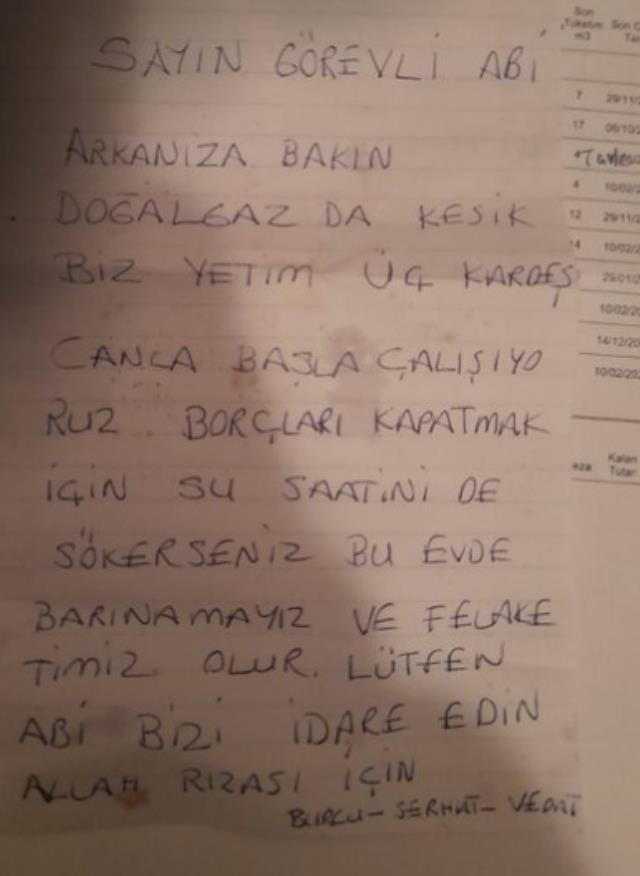 SAYIN GÖREVLİ ABİ
ARKANIZA BAKIN
DOĞALGAZ DA KESİK
BİZ YETİM ÜÇ KARDEŞ
CANLA BAŞLA ÇALIŞIYO
RUZ. BORÇLARI KAPATMAK
İÇİN SU SAATİNİ DE
SÖKERSENİZ BU EVDE
BARINAMAYIZ VE FELAKE
TİMİZ OLUR. LÜTFEN
ABİ BİZİ İDARE EDİN
ALLAH RIZASI İÇİN
BURCU - SERHAT - VEDAT
Son
Tüketim
m3
Son
7 29/11/2
17 06/10/2
4 10/02/2
12 29/11/2
10/02/2
29/01/2
10/02/20
14/12/20
10/02/202
Kalan
Tutar